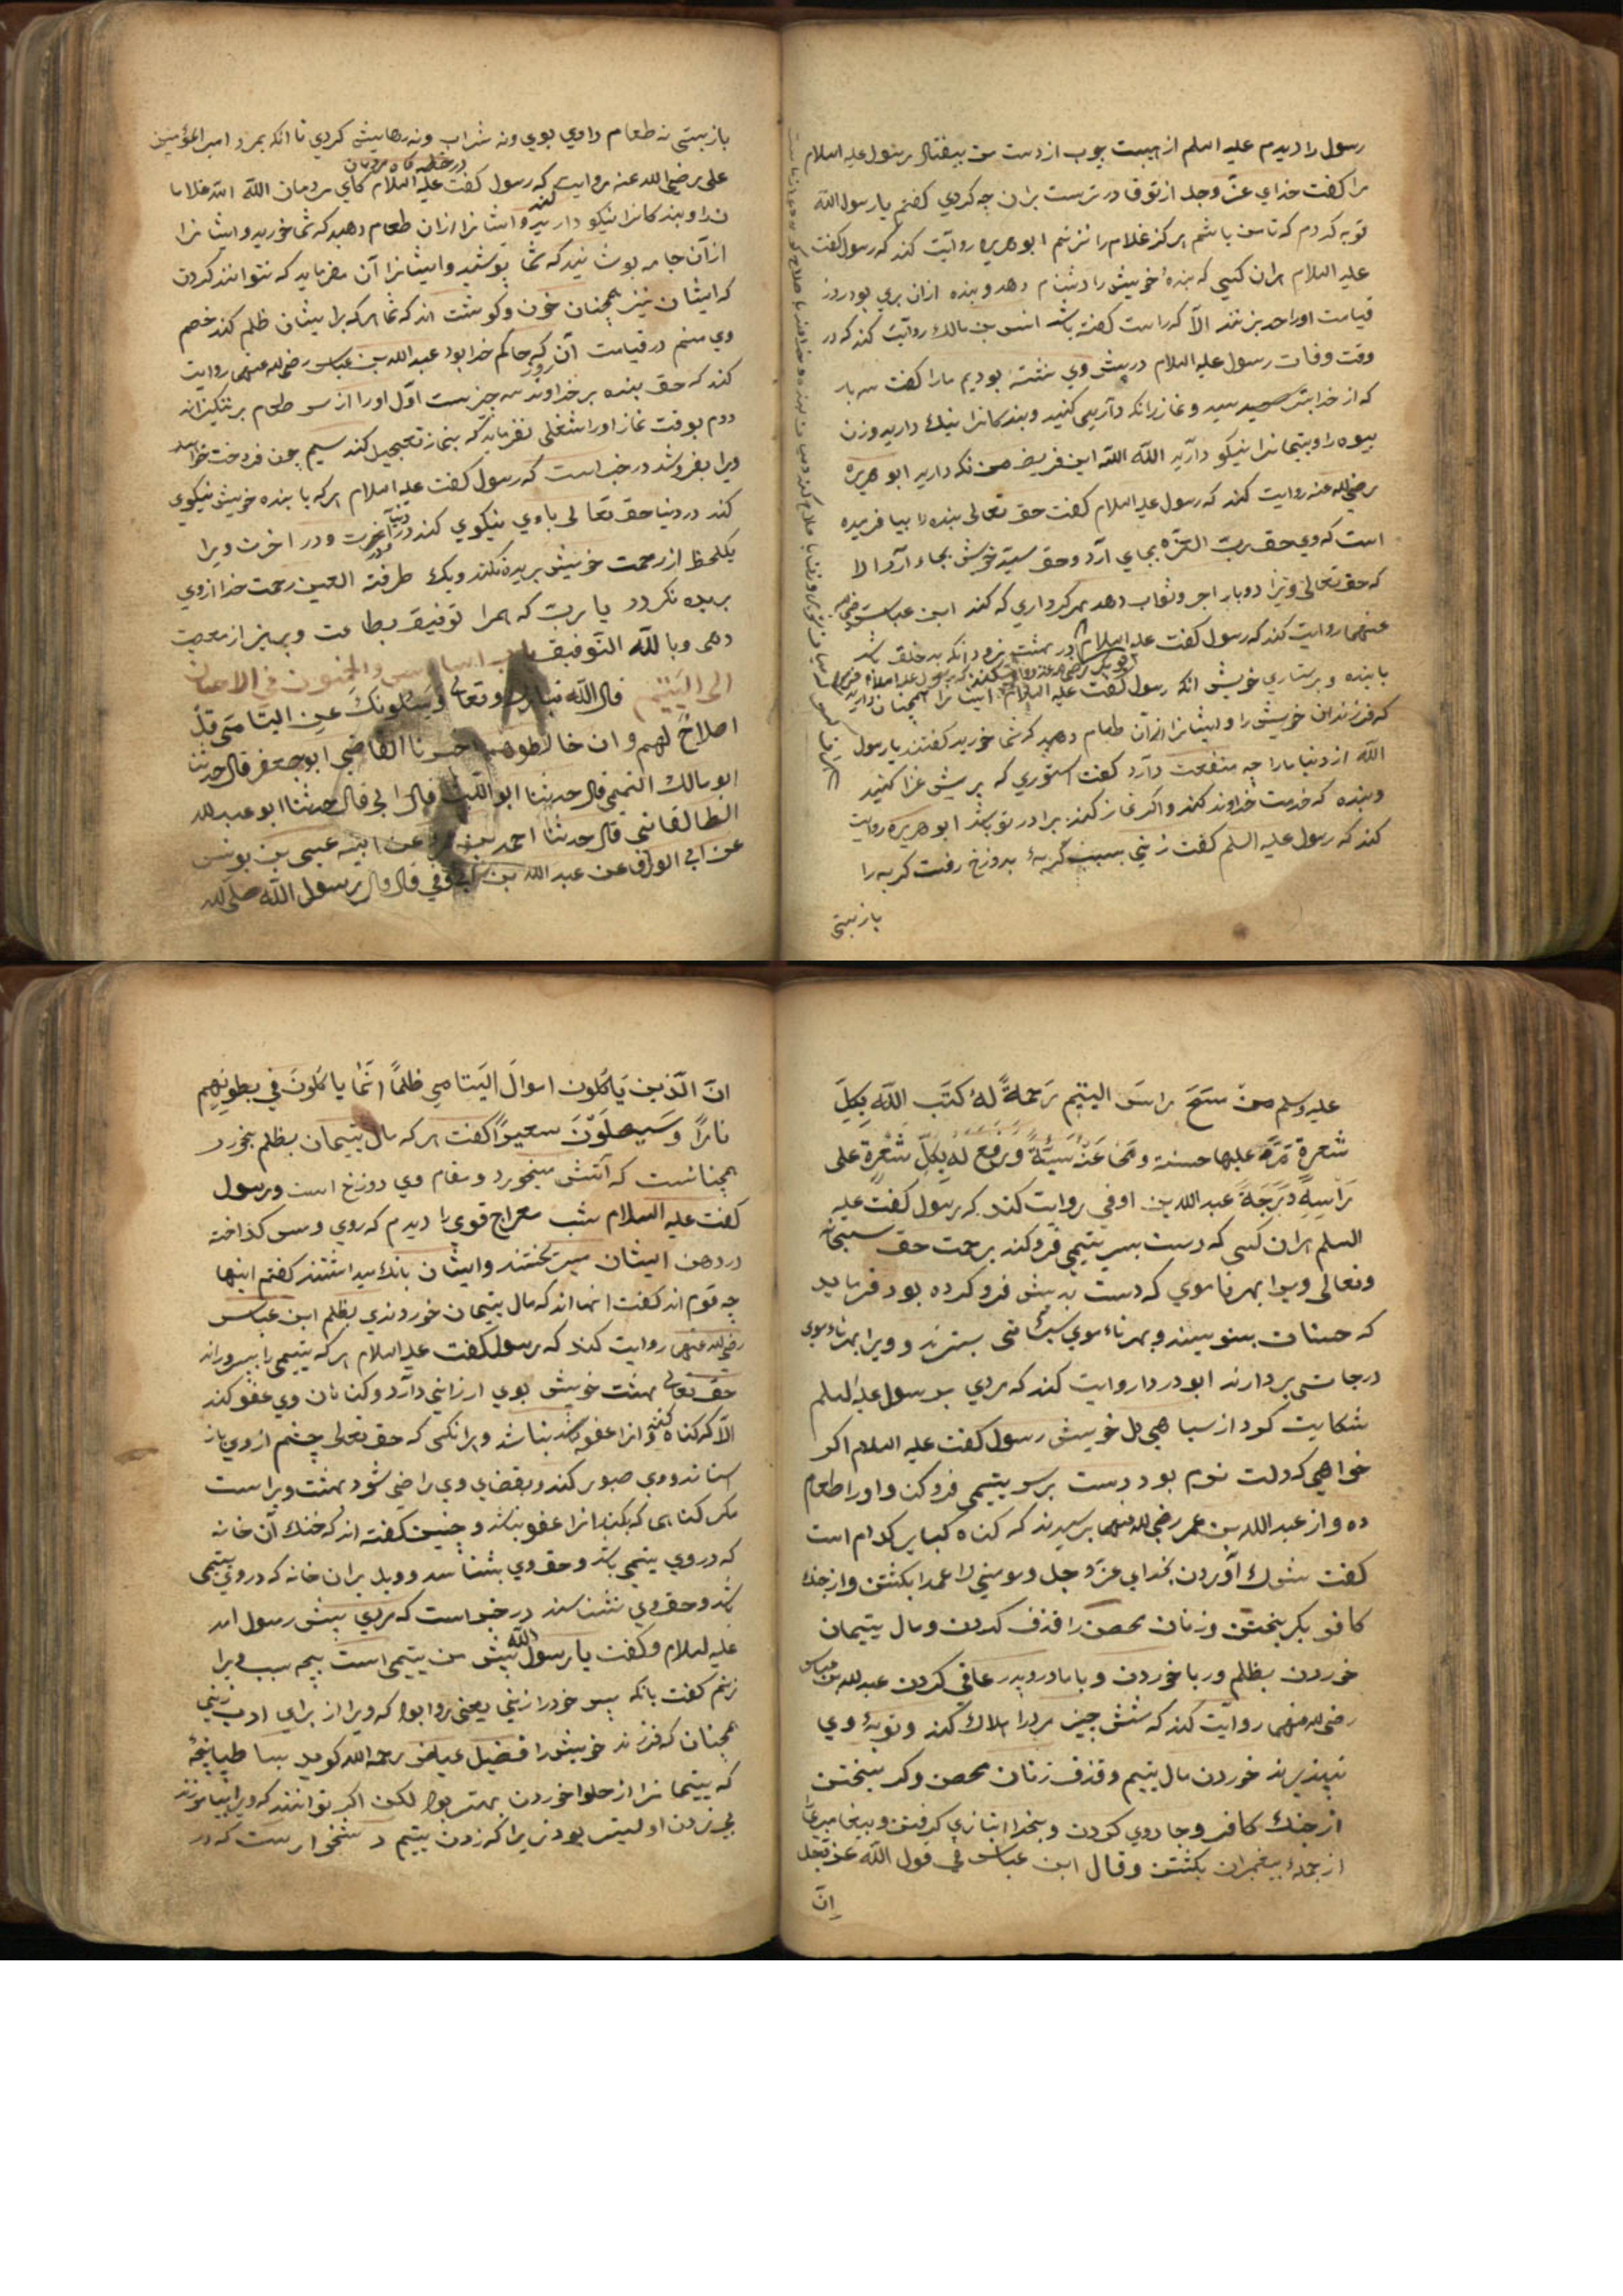 رسول را دیدم علیه السلم از هیبت چوب از دست من بیفتاد رسول علیه السلام
مرا کفت خدای عزّ وجل از تو قادرترست بران چه کردی کفتم یا رسول الله
توبه کردم که تا من باشم هرکز غلام را نزنم ابو هریره روایت کند که رسول کفت
علیه السلام هران کسی که بندهٔ خویش را دشنام دهد و بنده ازان بری بود روز
قیامت او را حد بزنند الّا که راست کفته باشد انس بن مالك روایت کند که در
وقت وفات رسول علیه السلام در پیش وی نشسته بودیم ما را کفت سه بار
که از خدا بترسید و نماز را نکه دارید و بندکانرا نیك دارید و زن
بیوه را و یتیمانرا نیکو دارید الله الله این فریضه من نکه دارید ابو هریره
رضی الله عنه روایت کند که رسول علیه السلام کفت حق تعالی بنده را بیافریده
است که وی حق ربّ العزّه بجای آرد و حق سید خویش بجای آرد الا
که حق تعالی ویرا دوبار اجر و ثواب دهد بهر کرداری که کند ابن عباس رضی الله
عنهما روایت کند که رسول کفت علیه السلام در بهشت نرود انکه بدخلق باشد
با بنده و پرستاری خویش انکه رسول کفت علیه السلام ایشانرا همچنان دارید
که فرزندان خویش را و ایشانرا ازان طعام دهید که شما خورید کفتند یا رسول
الله از دنیا ما را چه منفعت دارد کفت استوری که بریش غزا کنید
و بنده که خدمت خداوند کند و اکر نماز کند برادر تو باشد ابو هریره روایت
کند که رسول علیه السلم کفت زنی بسبب کربهٔ بدوزخ رفت کربه را
بازبستی
بازبستی نه طعام دادی بوی ونه شراب ونه رهاییش کردی تا انکه بمرد امیر المؤمنین
علی رضی الله عنه روایت که رسول کفت علیه السلام کای مردمان الله الله غلاما
نرا و بندکانرا نیکو دارید و ایشانرا ازان طعام دهید که شما خورید و ایشانرا
از آن جامه پوشانید که شما پوشید و ایشانرا آن مفرمایید که نتوانند کردن
که ایشان نیز همچنان خون و کوشت اند که شما هرکه بر ایشان ظلم کند خصم
وی منم در قیامت آن روز که حاکم خدا بود عبد الله بن عباس رضی الله عنهما روایت
کند که حق بنده بر خداوند سه چیزست اوّل او را از سر طعام برنینکیزاند
دوم بوقت نماز او را شغلی نفرماید که بنماز تعجیل کند سیم چون فروخت خواهد
ویرا بفروشد در خبر است که رسول کفت علیه السلام هرکه با بنده خویش نیکوی
کند در دنیا حق تعالی با وی نیکوی کند در دنیا و آخرت و در اخرت ویرا
یکلحظ از رحمت خویش بریده نکند ویك طرفة العین رحمت خدا از وی
بریده نکردد یا ربّ که همرا توفیق بطاعت و پرهیز از معصیت
دهی وبالله التوفیق باب السادس والخمسون فی الاحسان
الی الیتیم قال الله تبارك وتعالی ویسئلونك عن الیتامی قل
اصلاحٌ لهم وان خالطوهم اخبرنا القاضی ابو جعفر قال حدثنا
ابو مالك التمیمی قال حدثنا ابو اللیث قال ابی قال حدثنا ابو عبد الله
الطالقانی قال حدثنا احمد بن عن ابیه عیسی بن یونس
عن ابی الورقا عن عبد الله بن ابی اوفی قال قال رسول الله صلی الله
علیه وسلم من مسَحَ راسَ الیتیم رَحمةً لهُ کتَب اللّه بِکلِّ
شعرةٍ تمرّ علیها حسنة ومَحا عنهُ سیّئةً ورفع له بکلّ شعرةٍ علی
رَاسِهِ دَرَجَةً عبد الله بن اوفی روایت کند که رسول کفت علیه
السلم هران کسی که دست بسر یتیمی فرو کند برحمت حق سبحانه
وتعالی ویرا بهر تا موی که دست بدیش فرو کرده بود فرماید
که حسنات بنویسند و بهر تاء موی سیّئاتی بسترند و ویرا بهر تاء موی
درجاتی بردارند ابو دردا روایت کند که مردی بر رسول علیه السلم
شکایت کرد از سیاهی دل خویش رسول کفت علیه السلام اکر
خواهی که دلت نرم بود دست بر سر یتیمی فرو کن و او را طعام
ده و از عبد الله بن عمر رضی الله عنهما پرسیدند که کناه کبایر کدام است
کفت شرك آوردن بخدای عزّ وجل و مومنی را عمدا بکشتن و از جنك
کافر بکریختن و زنان محصن را قذف کردن و مال یتیمان
خوردن بظلم و ربا خوردن و با مادر و پدر عاقی کردن عبد الله بن عباس
رضی الله عنهما روایت کند که شش چیز مرد را هلاك کند و توبهٔ وی
نپذیرند خوردن مال یتیم و قذف زنان محصن و کریختن
از جنك کافر و جادوی کردن و بخدا انبازی کرفتن و پیغامبری
از جملهٔ پیغمبران بکشتن وقال ابن عباس فی قول الله عزّ وجل
اِنّ
انّ الّذین یَاکلون اموالَ الیَتامی ظلماً انّمٰا یاکلونَ فی بطونِهِم
ناراً وَسَیصلَوْنَ سعیراً کفت هرکه مال یتیمان بظلم بخورد
همچنانست که آتش میخورد و مقام وی دوزخ است و رسول
کفت علیه السلام شب معراج قومی را دیدم که روی و مس کداخته
در دهن ایشان میریختند و ایشان بانك میداشتند کفتم اینها
چه قوم اند کفت انها اند که مال یتیمان خوردندی بظلم ابن عباس
رضی الله عنهما روایت کند که رسول کفت علیه السلام هرکه یتیمی را بپروراند
حق تعالی بهشت خویش بوی ارزانی دارد و کناهان وی عفو کند
الّا کر کناه کند که انرا عفو نباشد و هرانکسی که حق تعالی چشم از وی باز
استاند و وی صبر کند و بقضای وی راضی شود بهشت ویراست
مکر کناهی که بکند انرا عفو نباشد و چنین کفته اند که خنك آن خانه
که در وی یتیمی باشد و حق وی بشناسند و ویل بران خانه که در وی یتیمی
باشد و حق وی نشناسند در خبر است که مردی پیش رسول امد
علیه السلام و کفت یا رسول الله پیش من یتیمی است بچه سبب ویرا
زنم کفت بانکه پسر خود را زنی یعنی روا بود که ویرا از برای ادب زنی
همچنان که فرزند خویش را فضیل عیاض رحمه الله کوید بسا طپانچهٔ
که یتیمانرا از حلوا خوردن بهتر بود لکن اکر توانند که ویرا بیاموزند
بی زدن اولیتر بود زیرا که زدن یتیم دشخوارست که در